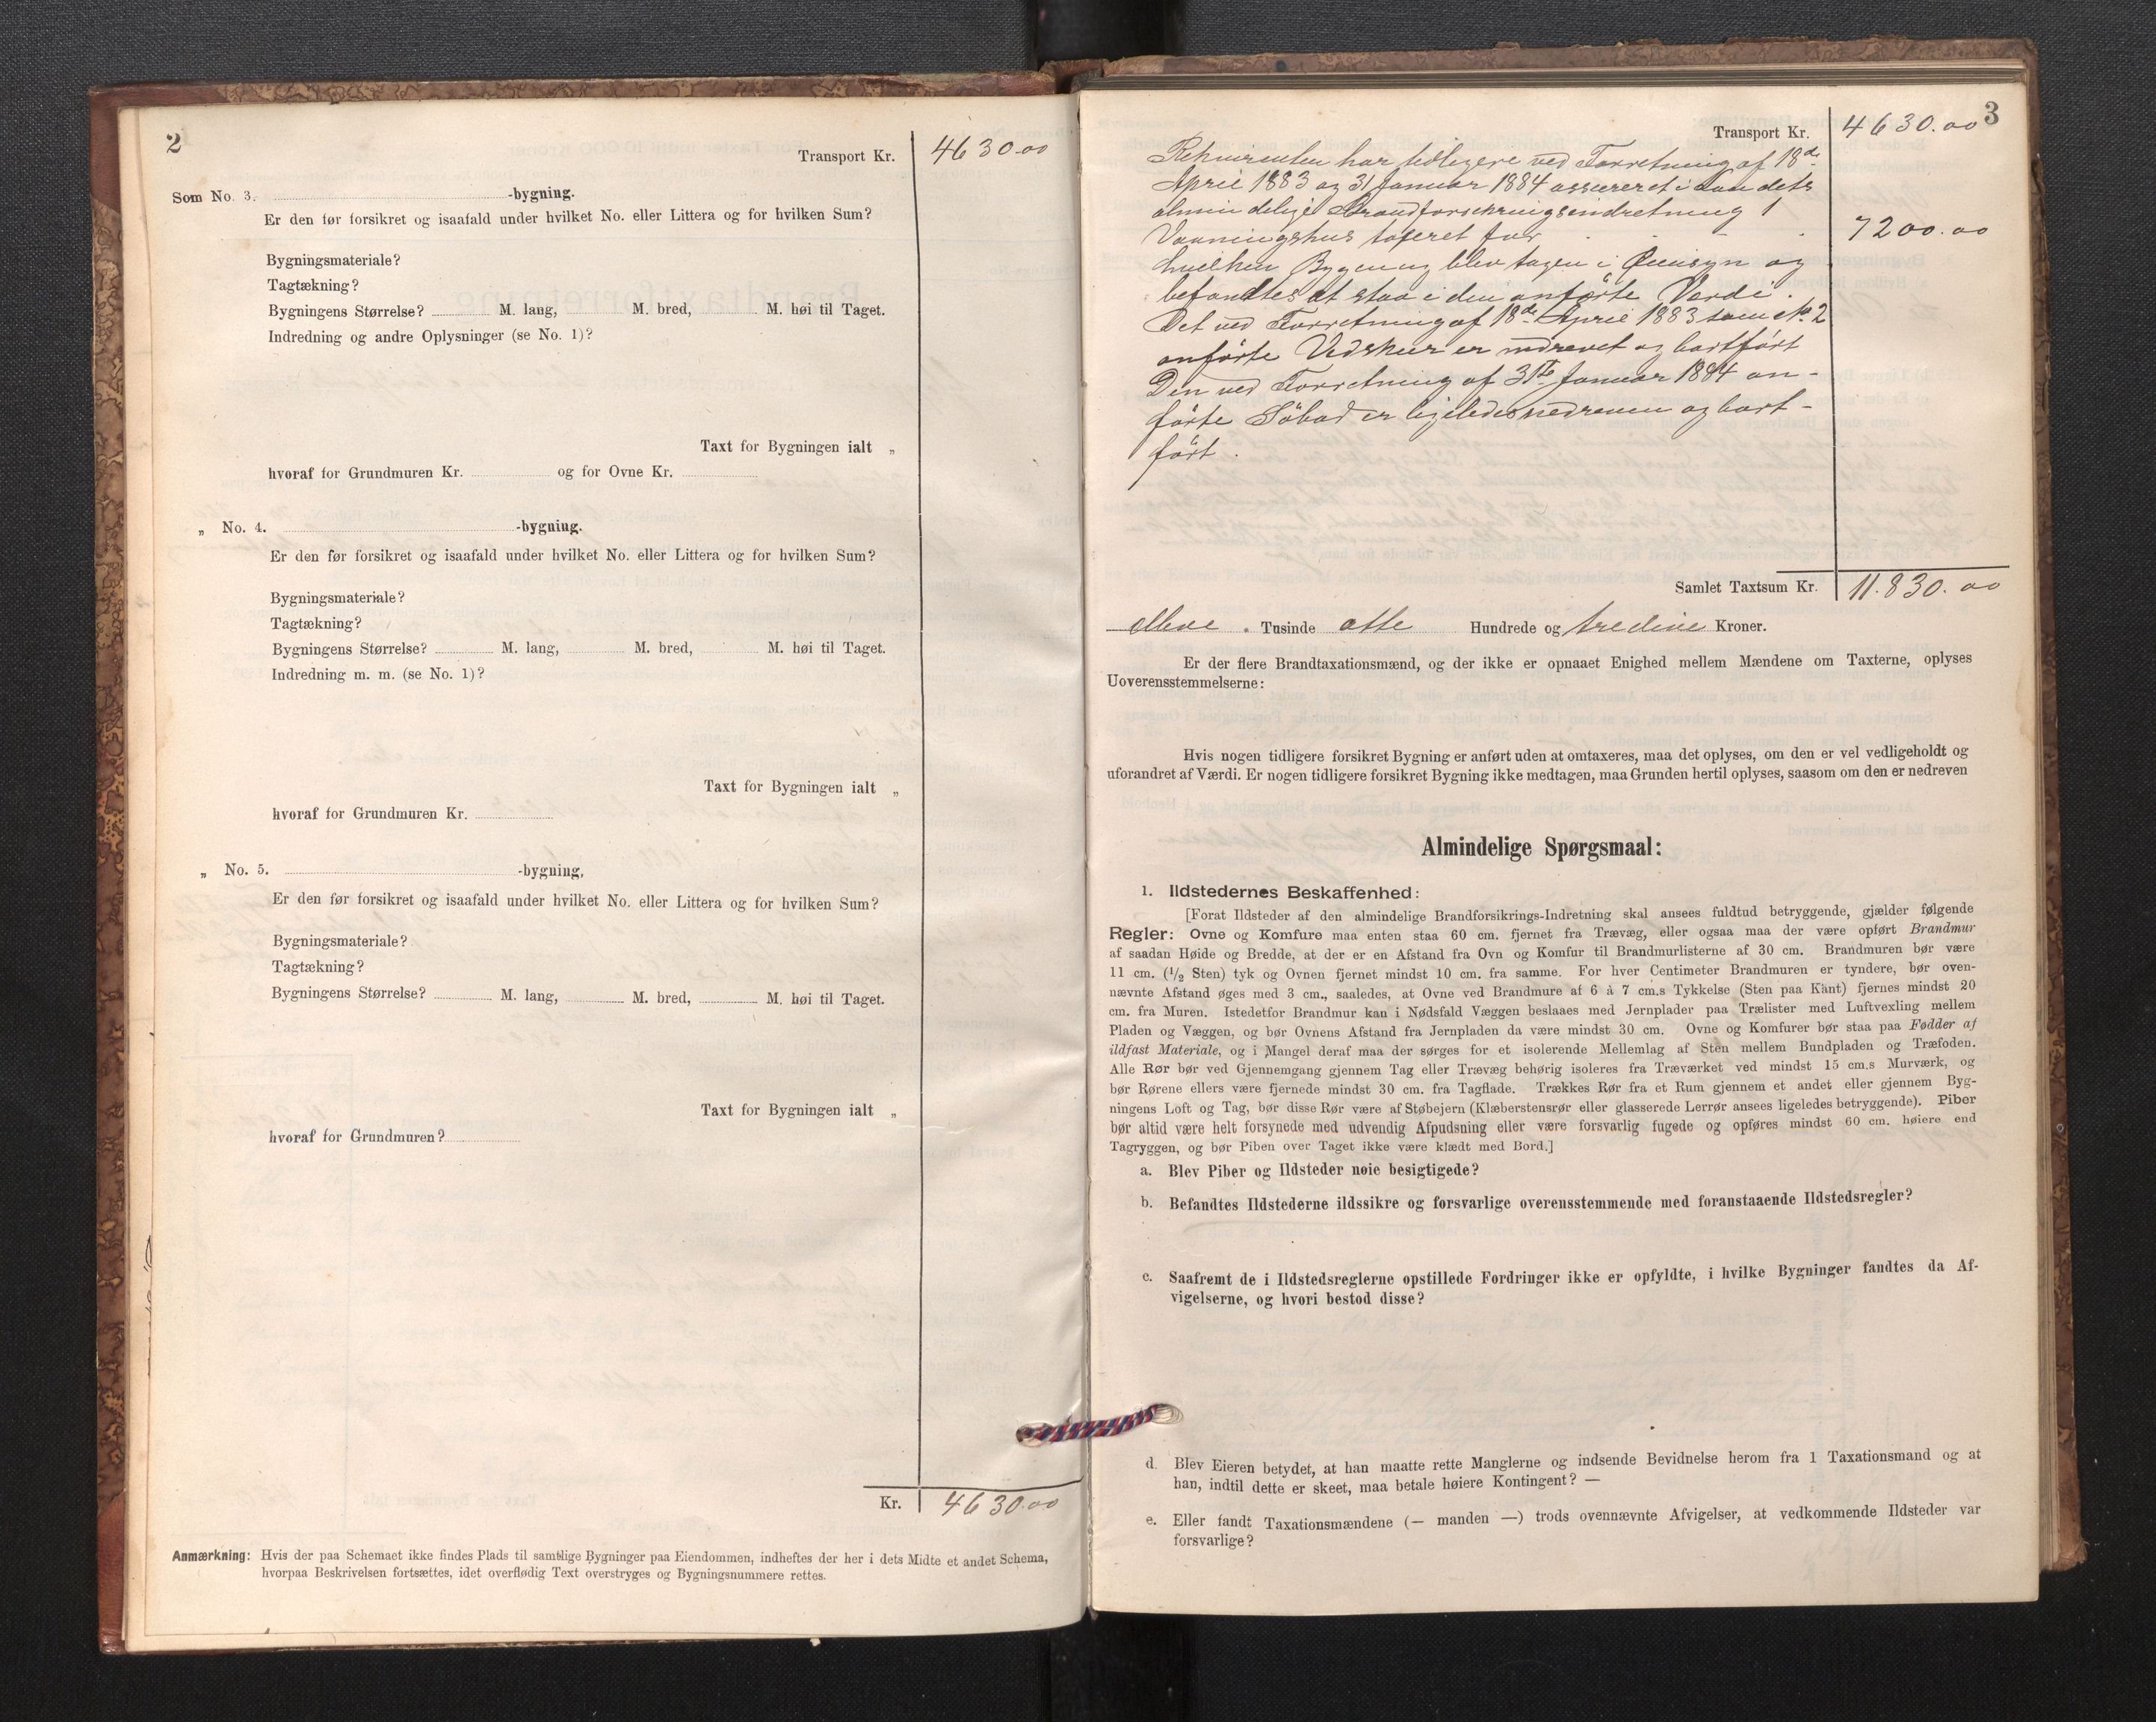 2
Transport Kr. 4630.00
Som No. 3. -bygning.
Er den før forsikret og isaafald under hvilket No. eller Littera og for hvilken Sum?
Bygningsmateriale?
Tagtækning?
Bygningens Størrelse? M. lang, M. bred, M. høi til Taget.
Indredning og andre Oplysninger (se No. 1)?
Taxt for Bygningen ialt „
hvoraf for Grundmuren Kr. og for Ovne Kr.
„ No. 4. -bygning.
Er den før forsikret og isaafald under hvilket No. eller Littera og for hvilken Sum?
Bygningsmateriale?
Tagtækning?
Bygningens Størrelse? M. lang, M. bred, M. høi til Taget.
Indredning m. m. (se No. 1)?
Taxt for Bygningen ialt „
hvoraf for Grundmuren Kr.
„ No. 5. -bygning,
Er den før forsikret og isaafald under hvilket No. eller Littera og for hvilken Sum?
Bygningsmateriale?
Tagtækning?
Bygningens Størrelse? M. lang, M. bred, M. høi til Taget.
Taxt for Bygningen ialt „
hvoraf for Grundmuren?
Kr. 4630.00
Anmærkning: Hvis der paa Schemaet ikke findes Plads til samtlige Bygninger paa Eiendommen, indheftes der her i dets Midte et andet Schema,
hvorpaa Beskrivelsen fortsættes, idet overflødig Text overstryges og Bygningsnummere rettes.
3
Transport Kr. 4630.00
Rekvirenten har tidligere ved Forretning af 18de
April 1883 og 31 Januar 1884 assureret i Landets
almindelige Brandforsikringsindretning 1
Vaaningshus taxeret for 7200.00
hvilken Bygning blev tagen i Øiensyn og
befandtes at staa i den anførte Verdi.
Det ved Forretning af 18de April 1883 som No 2
anførte Vedskur er nedrevet og bortført
Den ved Forretning af 31te Januar 1884 an-
førte Søbod er ligeledes nedreven og bort-
ført.
Samlet Taxtsum Kr. 11.830.00
elleve Tusinde otte Hundrede og tredive Kroner.
Er der flere Brandtaxationsmænd, og der ikke er opnaaet Enighed mellem Mændene om Taxterne, oplyses
Uoverensstemmelserne:
Hvis nogen tidligere forsikret Bygning er anført uden at omtaxeres, maa det oplyses, om den er vel vedligeholdt og
uforandret af Værdi. Er nogen tidligere forsikret Bygning ikke medtagen, maa Grunden hertil oplyses, saasom om den er nedreven
Almindelige Spørgsmaal:
1. Ildstedernes Beskaffenhed:
[Forat Ildsteder af den almindelige Brandforsikrings-Indretning skal ansees fuldtud betryggende, gjælder følgende
Regler: Ovne og Komfure maa enten staa 60 cm. fjernet fra Trævæg, eller ogsaa maa der være opført Brandmur
af saadan Høide og Bredde, at der er en Afstand fra Ovn og Komfur til Brandmurlisterne af 30 cm. Brandmuren bør være
11 cm. (1/2 Sten) tyk og Ovnen fjernet mindst 10 cm. fra samme. For hver Centimeter Brandmuren er tyndere, bør oven-
nævnte Afstand øges med 3 cm., saaledes, at Ovne ved Brandmure af 6 à 7 cm.s Tykkelse (Sten paa Kant) fjernes mindst 20
cm. fra Muren. Istedetfor Brandmur kan i Nødsfald Væggen beslaaes med Jernplader paa Trælister med Luftvexling mellem
Pladen og Væggen, og bør Ovnens Afstand fra Jernpladen da være mindst 30 cm. Ovne og Komfurer bør staa paa Fødder af
ildfast Materiale, og i Mangel deraf maa der sørges for et isolerende Mellemlag af Sten mellem Bundpladen og Træfoden.
Alle Rør bør ved Gjennemgang gjennem Tag eller Trævæg behørig isoleres fra Træværket ved mindst 15 cm.s Murværk, og
bør Rørene ellers være fjernede mindst 30 cm. fra Tagflade. Trækkes Rør fra et Rum gjennem et andet eller gjennem Byg-
ningens Loft og Tag, bør disse Rør være af Støbejern (Klæberstensrør eller glasserede Lerrør ansees ligeledes betryggende). Piber
bør altid være helt forsynede med udvendig Afpudsning eller være forsvarlig fugede og opføres mindst 60 cm. høiere end
Tagryggen, og bør Piben over Taget ikke være klædt med Bord.]
a. Blev Piber og Ildsteder nøie besigtigede?
b. Befandtes Ildstederne ildssikre og forsvarlige overensstemmende med foranstaaende Ildstedsregler?
c. Saafremt de i Ildstedsreglerne opstillede Fordringer ikke er opfyldte, i hvilke Bygninger fandtes da Af-
vigelserne, og hvori bestod disse?
d. Blev Eieren betydet, at han maatte rette Manglerne og indsende Bevidnelse herom fra 1 Taxationsmand og at
han, indtil dette er skeet, maa betale høiere Kontingent? —
e. Eller fandt Taxationsmændene (— manden —) trods ovennævnte Afvigelser, at vedkommende Ildsteder var
forsvarlige?